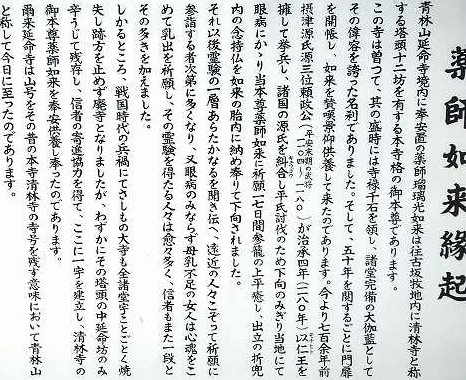 薬師如来縁起
青林山延命寺境内に奉安置の薬師瑠璃光如来は往古坂牧地内に清林寺と称
する塔頭十二坊を有する本寺格の御本尊であります。
この寺は曽つて、其の盛時には寺禄千石を領し、諸堂完備の大伽藍として
その偉容を誇った名刹でありました。そして、五十年を関するごとに門扉
を開帳し、如来を賛嘆景仰供養して来たのであります。今より七百余年前
摂津源氏源三位頼政公(平安末期の武将一一〇四〜一一八〇)が治承四年(一一八〇年)以仁王を
擁して挙兵し、諸国の源氏を糾合し平氏討伐のため下向のみぎり当地にて
眼病にかゝり当本尊薬師如来に祈願一七日間参籠の上平癒し、出立の折兜
の内の念持仏を如来の胎内に納め奉りて下向されました。
それ以後霊験の一層あらたかなるを聞き伝へ、遠近の人々こぞって祈願に
参詣する者次第に多くなり、又眼病のみならず母乳不足の女人は心魂をこ
めて乳出を祈願し、その霊験を得たる人々は愈々多く、信者もまた一段と
その多きを加えました。
しかるところ、戦国時代の兵禍にてさしもの大寺も全諸堂宇ことごとく焼
失し跡方を止めず廃寺となりましたが、わずかにその塔頭の中延命坊のみ
辛うじて残存し、信者の寄進協力を得て、ここに一宇を建立し、清林寺の
御本尊薬師如来を奉安供養し奉ったのであります。
爾来延命寺は山号をその昔の本寺清林寺の寺号を残す意味において青林山
と称して今日に至ったのであります。